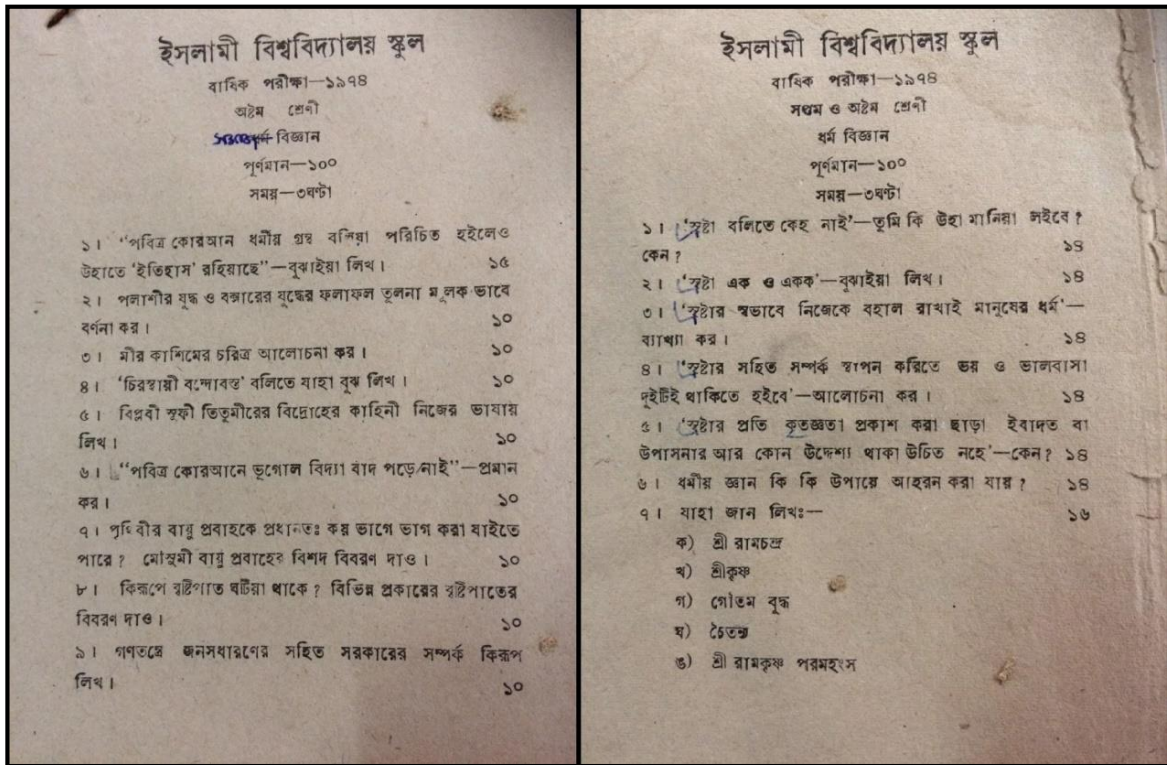 ইসলামী বিশ্ববিদ্যালয় স্কুল
বার্ষিক পরীক্ষা—১৯৭৪
অষ্টম শ্রেণী
বিজ্ঞান
পূর্ণমান—১০০
সময়—৩ঘণ্টা
১। “পবিত্র কোরআন ধর্মীয় গ্রন্থ বলিয়া পরিচিত হইলেও
উহাতে ‘ইতিহাস’ রহিয়াছে”—বুঝাইয়া লিখ। ১৫
২। পলাশীর যুদ্ধ ও বক্সারের যুদ্ধের ফলাফল তুলনা মূলক ভাবে
বর্ণনা কর। ১০
৩। মীর কাশিমের চরিত্র আলোচনা কর। ১০
৪। ‘চিরস্থায়ী বন্দোবস্ত’ বলিতে যাহা বুঝ লিখ। ১০
৫। বিপ্লবী সূফী তিতুমীরের বিদ্রোহের কাহিনী নিজের ভাষায়
লিখ। ১০
৬। “পবিত্র কোরআনে ভূগোল বিদ্যা বাদ পড়ে নাই”—প্রমান
কর। ১০
৭। পৃথিবীর বায়ু প্রবাহকে প্রধানতঃ কয় ভাগে ভাগ করা যাইতে
পারে? মৌসুমী বায়ু প্রবাহের বিশদ বিবরণ দাও। ১০
৮। কিরূপে বৃষ্টিপাত ঘটিয়া থাকে? বিভিন্ন প্রকারের বৃষ্টিপাতের
বিবরণ দাও। ১০
৯। গণতন্ত্রে জনসধারণের সহিত সরকারের সম্পর্ক কিরূপ
লিখ। ১০
ইসলামী বিশ্ববিদ্যালয় স্কুল
বার্ষিক পরীক্ষা—১৯৭৪
সপ্তম ও অষ্টম শ্রেণী
ধর্ম বিজ্ঞান
পূর্ণমান—১০০
সময়—৩ঘণ্টা
১। ‘স্রষ্টা বলিতে কেহ নাই’—তুমি কি উহা মানিয়া লইবে?
কেন? ১৪
২। ‘স্রষ্টা এক ও একক’—বুঝাইয়া লিখ। ১৪
৩। ‘স্রষ্টার স্বভাবে নিজেকে বহাল রাখাই মানুষের ধর্ম’—
ব্যাখ্যা কর। ১৪
৪। ‘স্রষ্টার সহিত সম্পর্ক স্থাপন করিতে ভয় ও ভালবাসা
দুইটিই থাকিতে হইবে’—আলোচনা কর। ১৪
৫। ‘স্রষ্টার প্রতি কৃতজ্ঞতা প্রকাশ করা ছাড়া ইবাদত বা
উপাসনার আর কোন উদ্দেশ্য থাকা উচিত নহে’—কেন? ১৪
৬। ধর্মীয় জ্ঞান কি কি উপায়ে আহরন করা যায়? ১৪
৭। যাহা জান লিখঃ— ১৬
ক) শ্রী রামচন্দ্র
খ) শ্রীকৃষ্ণ
গ) গৌতম বুদ্ধ
ঘ) চৈতন্য
ঙ) শ্রী রামকৃষ্ণ পরমহংস